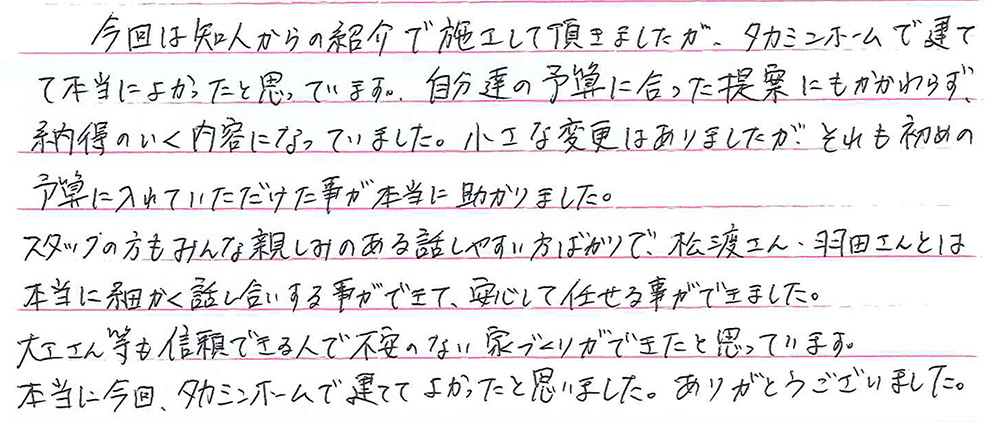 今回は知人からの紹介で施工して頂きましたが、タカミンホームで建て
て本当によかったと思っています。自分達の予算に合った提案にもかかわらず、
納得のいく内容になっていました。小さな変更はありましたが、それも初めの
予算に入れていただけた事が本当に助かりました。
スタッフの方もみんな親しみのある話しやすい方ばかりで、松渡さん・羽田さんとは
本当に細かく話し合いする事ができて、安心して任せる事ができました。
大工さん等も信頼できる人で不安のない家づくりができたと思っています。
本当に今回、タカミンホームで建ててよかったと思いました。ありがとうございました。